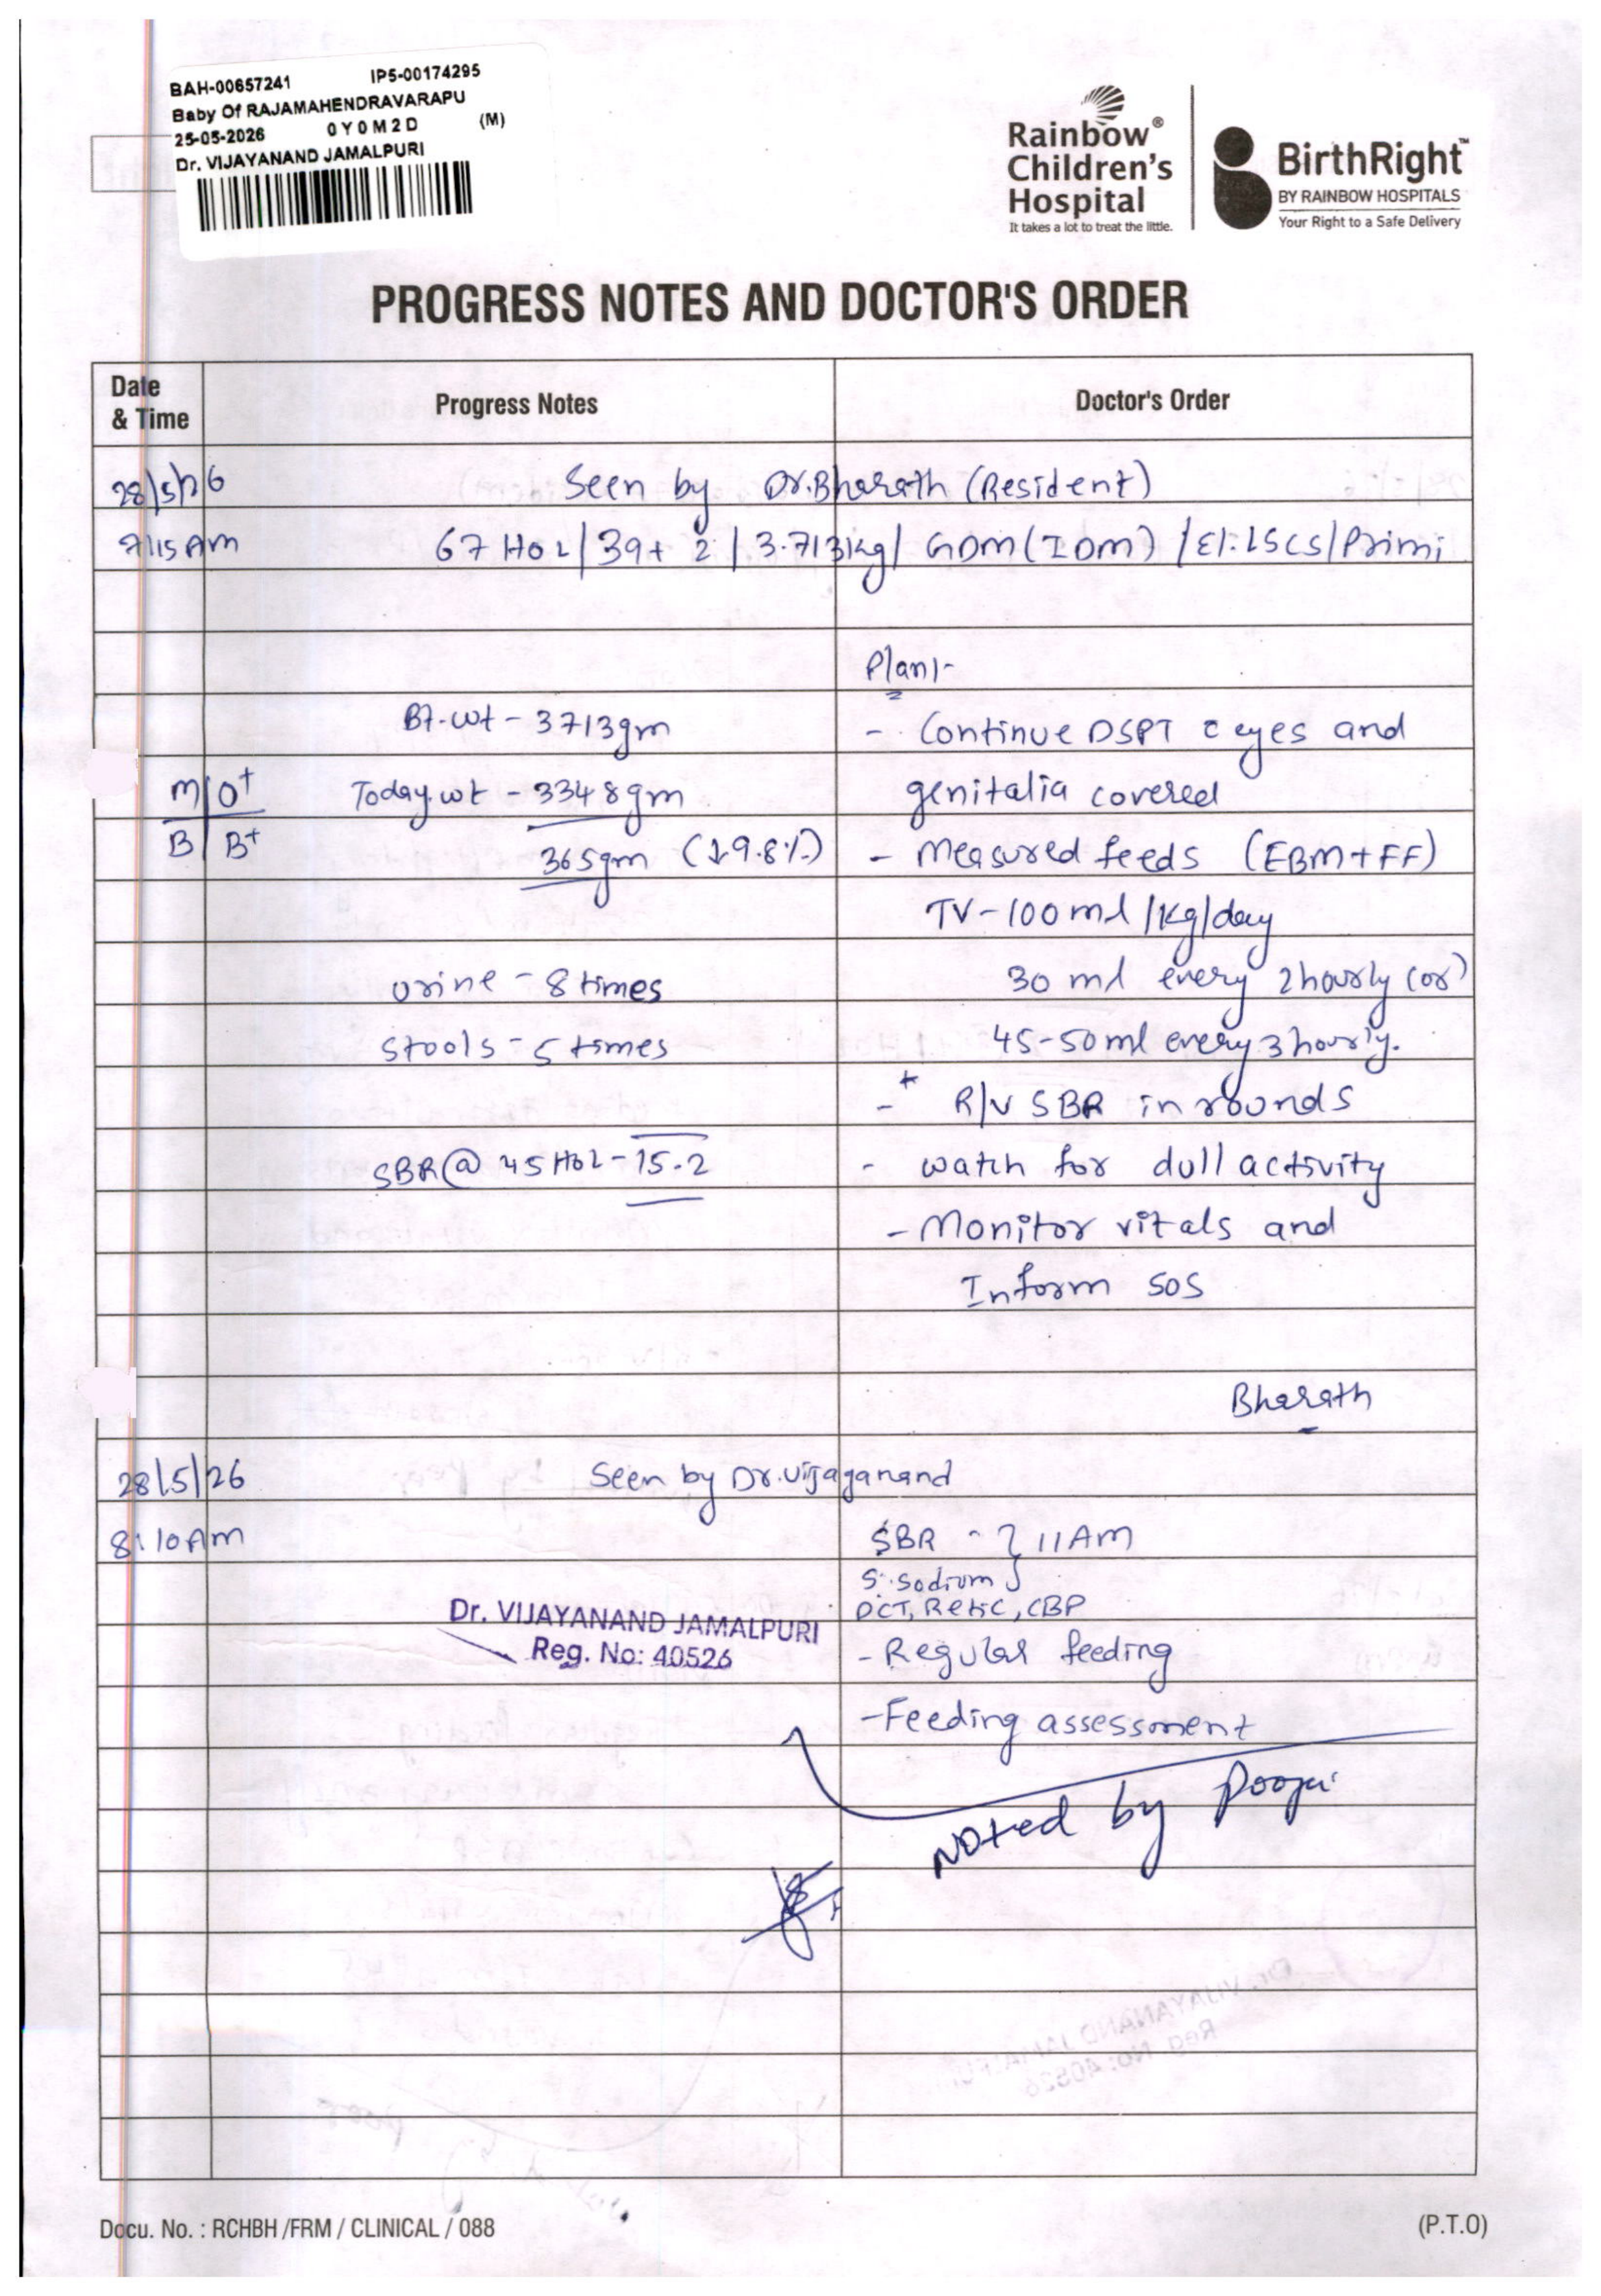 BAH-00657241 IP5-00174295
Baby Of RAJAMAHENDRAVARAPU
25-05-2026 0Y0M2D (M)
Dr. VIJAYANAND JAMALPURI
Rainbow®
Children's
Hospital
It takes a lot to treat the little.
BirthRight™
BY RAINBOW HOSPITALS
Your Right to a Safe Delivery
PROGRESS NOTES AND DOCTOR'S ORDER
Date
& Time
Progress Notes
Doctor's Order
28/5/26 Seen by Dr.Bharath (Resident)
7:15 Am 67 HOL/39+2/3.713kg/ GDM (IDM) /El.LSCS/Primi
Plan:-
Bt.wt - 3713gm - Continue DSPT c eyes and
M O+ Today.wt - 3348gm genitalia covered
B B+ 365gm (↓9.8%) - Measured feeds (EBM+FF)
TV-100ml/kg/day
urine - 8 times 30 ml every 2hourly (or)
stools - 5 times 45-50ml every 3 hourly.
- * R/V SBR in rounds
SBR @ 45 HOL - 15.2 - watch for dull activity
- Monitor vitals and
Inform SOS
Bharath
28/5/26 Seen by Dr.Vijayanand
8:10 Am SBR - } 11AM
S. Sodium }
DCT, Retic, CBP
Dr. VIJAYANAND JAMALPURI
Reg. No: 40526
- Regular feeding
- Feeding assessment
Noted by Pooja
Docu. No. : RCHBH /FRM / CLINICAL / 088 (P.T.O)